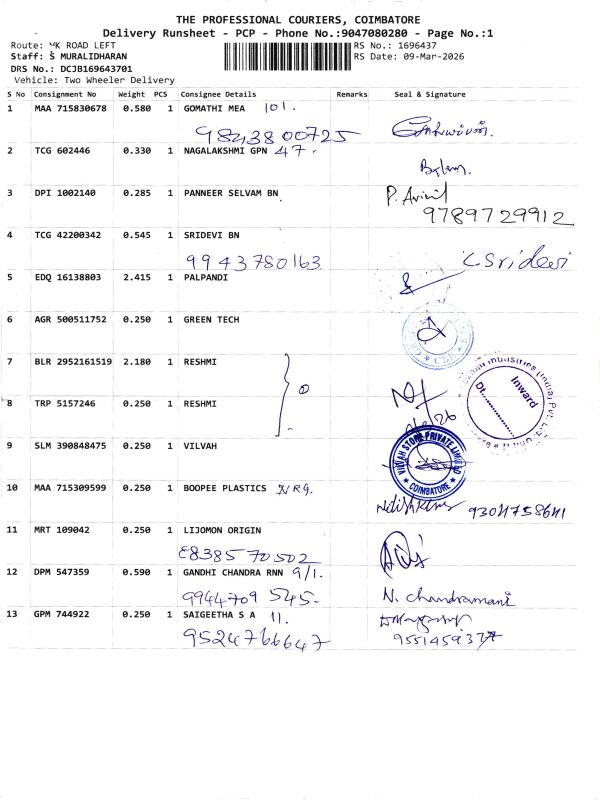 THE PROFESSIONAL COURIERS, COIMBATORE
Delivery Runsheet - PCP - Phone No.:9047080280 - Page No.:1
Route: MK ROAD LEFT RS No.: 1696437
Staff: S MURALIDHARAN RS Date: 09-Mar-2026
DRS No.: DCJB169643701
Vehicle: Two Wheeler Delivery
S No Consignment No Weight PCS Consignee Details Remarks Seal & Signature
1 MAA 715830678 0.580 1 GOMATHI MEA 101.
9843800725
2 TCG 602446 0.330 1 NAGALAKSHMI GPN 47.
3 DPI 1002140 0.285 1 PANNEER SELVAM BN P. Arivil
9789729912
4 TCG 42200342 0.545 1 SRIDEVI BN
9943780163 C Sridevi
5 EDQ 16138803 2.415 1 PALPANDI
6 AGR 500511752 0.250 1 GREEN TECH
CBE
7 BLR 2952161519 2.180 1 RESHMI
Industries (India) Pvt. Ltd.
Inward
Dt.
8 TRP 5157246 0.250 1 RESHMI
9 SLM 390848475 0.250 1 VILVAH
VILVAH STORE PRIVATE LIMITED
COIMBATORE
10 MAA 715309599 0.250 1 BOOPEE PLASTICS NRG.
Nitishkumar 9304758641
11 MRT 109042 0.250 1 LIJOMON ORIGIN
8838570502
12 DPM 547359 0.590 1 GANDHI CHANDRA RNN 9/1.
9944709545. N. Chandramani
13 GPM 744922 0.250 1 SAIGEETHA S A 11.
9524766647 9551459377